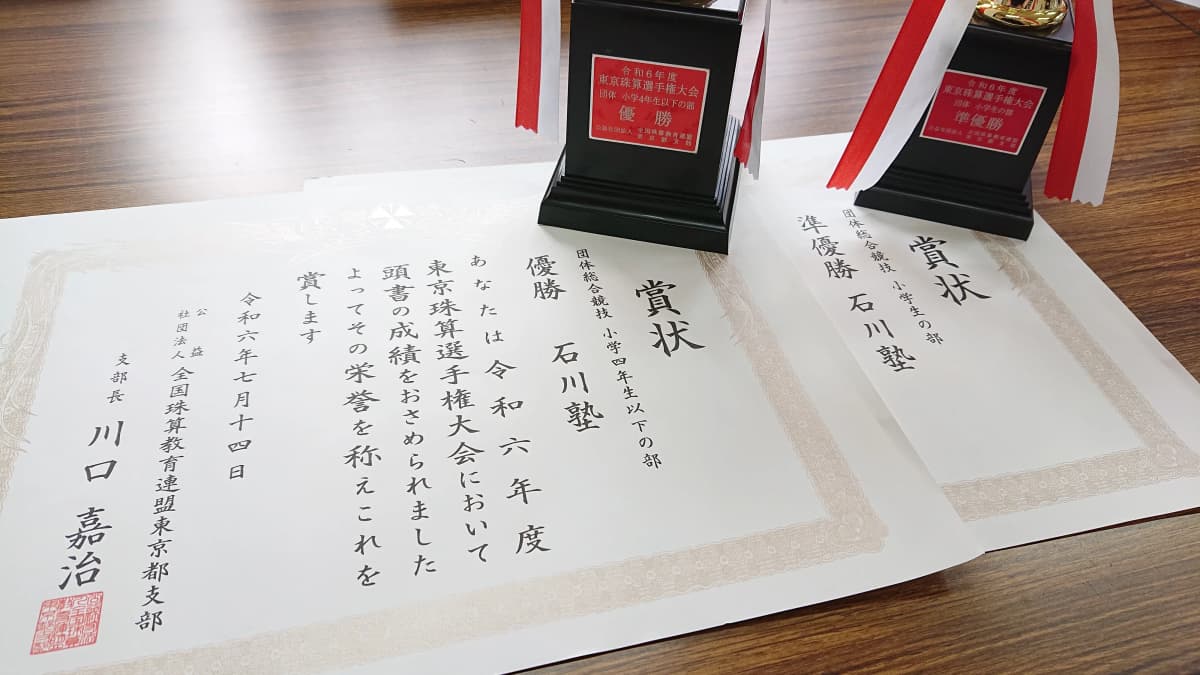 令和6年度
東京珠算選手権大会
団体 小学4年生以下の部
優勝
公益社団法人 全国珠算教育連盟
東京都支部
令和6年度
東京珠算選手権大会
団体 小学生の部
準優勝
公益社団法人 全国珠算教育連盟
東京都支部
賞状
団体総合競技 小学四年生以下の部
優勝 石川塾
あなたは令和六年度
東京珠算選手権大会において
頭書の成績をおさめられました
よってその栄誉を称えこれを
賞します
令和六年七月十四日
公益
社団法人 全国珠算教育連盟東京都支部
支部長 川口嘉治
賞状
団体総合競技 小学生の部
準優勝 石川塾